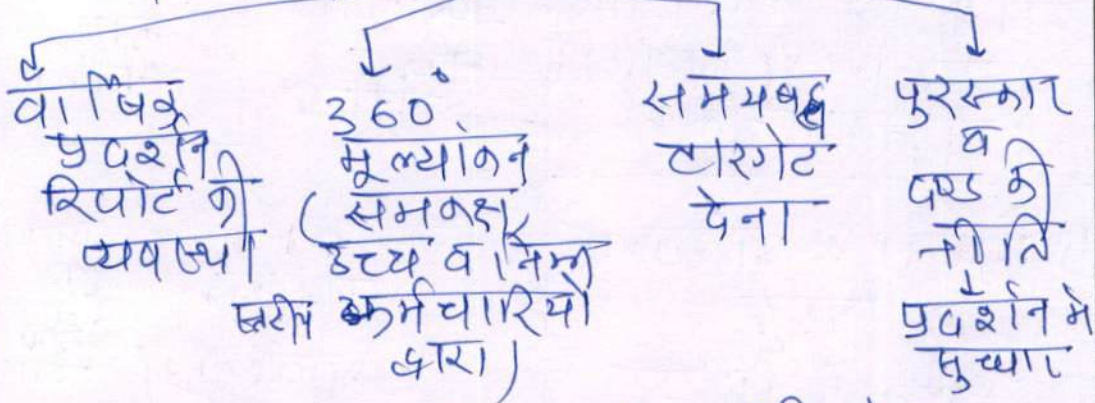 वार्षिक
प्रदर्शन
रिपोर्ट की
व्यवस्था
360°
मूल्यांकन
(समकक्ष,
उच्च व निम्न
स्तरीय कर्मचारियों
द्वारा)
समयबद्ध
टारगेट
देना
पुरस्कार
व
दण्ड की
नीति
↓
प्रदर्शन मे
सुधार